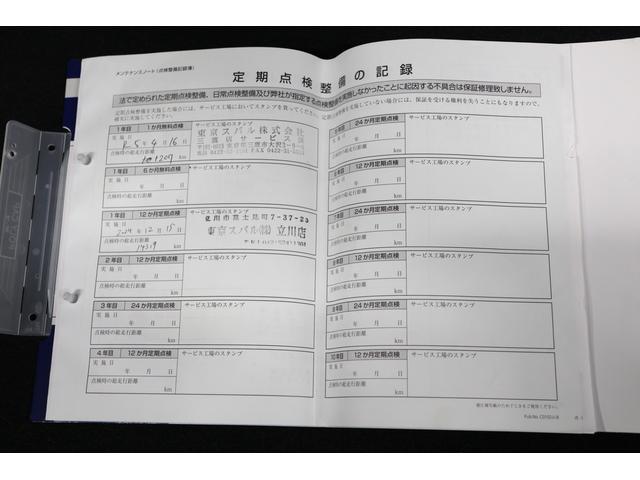 メンテナンスノート(点検整備記録簿)
定期点検整備の記録
法で定められた定期点検整備、日常点検整備及び弊社が指定する点検整備を実施しなかったことに起因する不具合は保証修理致しません。
定期点検整備を実施した場合には、サービス工場においてスタンプを貰ってください。
確実に実施してください。
実施していない場合には、保証を受ける権利を失うことにもなりますので、
1年目 1か月無料点検
サービス工場のスタンプ
実施日
R5年4月16日
点検時の総走行距離
1207 km
東京スバル株式会社
三鷹店サービス課
東京都三鷹市大沢
FAX 0422-31
1年目 6か月無料点検
サービス工場のスタンプ
実施日
年 月 日
点検時の総走行距離
km
1年目 12か月定期点検
サービス工場のスタンプ
実施日
2024年12月15日
点検時の総走行距離
14319 km
立川市富士見町7-37-23
東京スバル(株)立川店
2年目 12か月定期点検
サービス工場のスタンプ
実施日
年 月 日
点検時の総走行距離
km
3年目 24か月定期点検
サービス工場のスタンプ
実施日
年 月 日
点検時の総走行距離
km
4年目 12か月定期点検
サービス工場のスタンプ
実施日
年 月 日
点検時の総走行距離
km
24か月定期点検
サービス工場のスタンプ
実施日
年 月 日
点検時の総走行距離
km
12か月定期点検
サービス工場のスタンプ
実施日
年 月 日
点検時の総走行距離
km
7年目 24か月定期点検
サービス工場のスタンプ
実施日
年 月 日
点検時の総走行距離
km
12か月定期点検
サービス工場のスタンプ
実施日
年 月 日
点検時の総走行距離
km
9年目 24か月定期点検
サービス工場のスタンプ
実施日
年 月 日
点検時の総走行距離
km
10年目 12か月定期点検
サービス工場のスタンプ
実施日
年 月 日
点検時の総走行距離
km